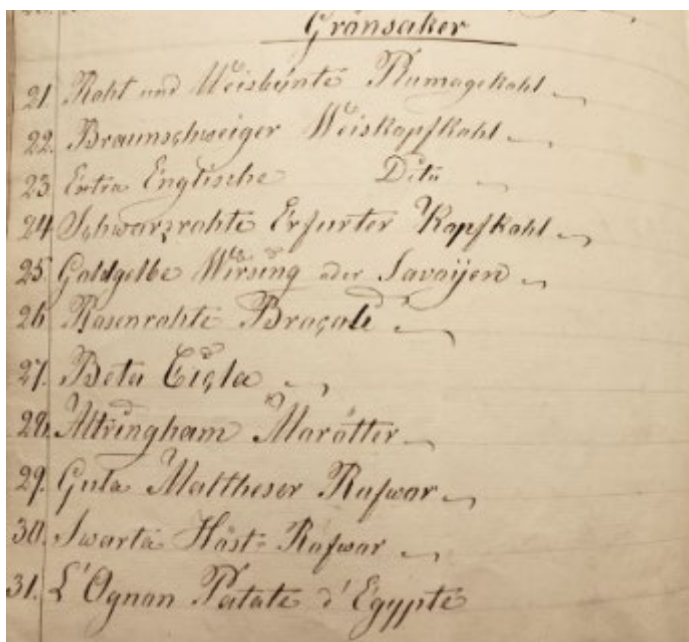 Grönsaker
21. Roht und Weisbunte Plumagekohl
22. Braunschweiger Weiskopfkohl
23. Extra Englische Dito
24. Schwarzrohte Erfurter Kopfkohl
25. Goldgelbe Wirsing oder Savoÿen
26. Rosenrohte Braçole
27. Beta Cicla
28. Altringham Morötter
29. Gula Maltheser Rofwor
30. Swarta Höst-Rofwor
31. L'Ognon Patate d'Egypte